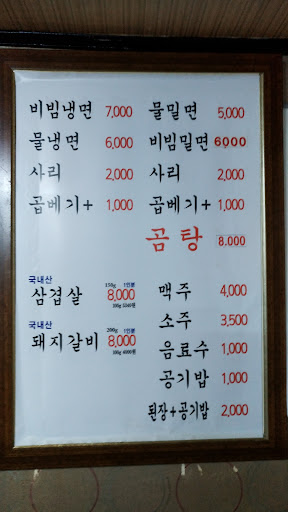 비빔냉면 7,000
물냉면 6,000
사리 2,000
곱베기+ 1,000
물밀면 5,000
비빔밀면 6000
사리 2,000
곱베기+ 1,000
곰탕 8,000
국내산 150g 1인분
삼겹살 8,000
국내산 200g 1인분
돼지갈비 8,000
100g 4000원
맥주 4,000
소주 3,500
음료수 1,000
공기밥 1,000
된장+공기밥 2,000